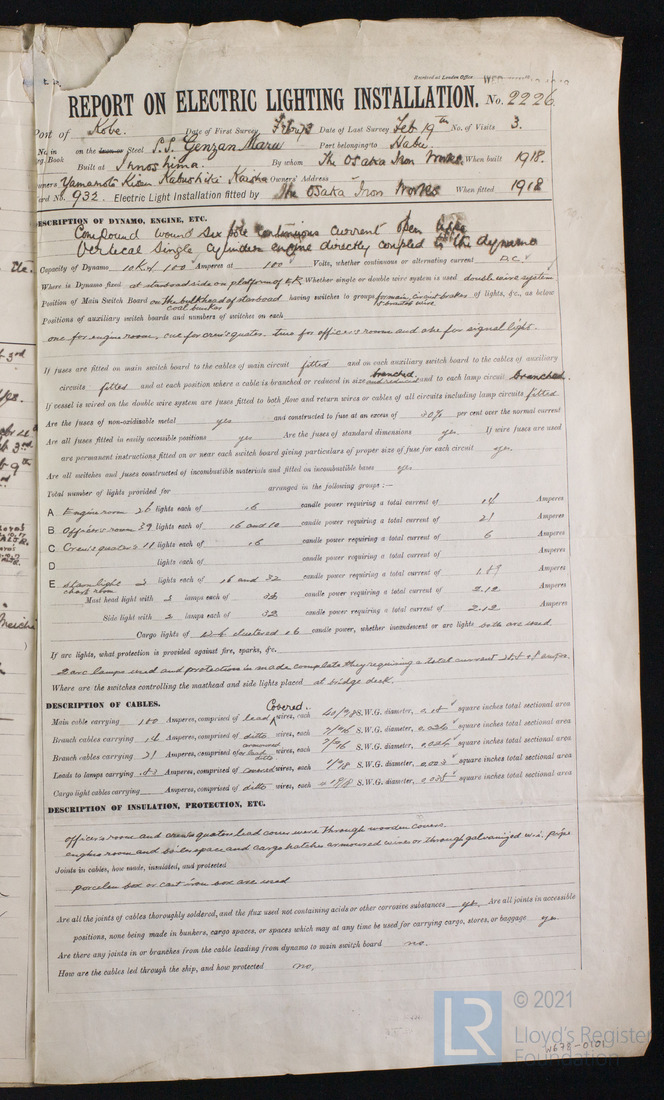 Received at London Office
REPORT ON ELECTRIC LIGHTING INSTALLATION. No. 2226
Port of Kobe. Date of First Survey Date of Last Survey Feb 19th No. of Visits 3.
No. in on the Steel S.S. Genzan Maru Port belonging to Habu.
Reg. Book Built at Innoshima. By whom The Osaka Iron Works When built 1918.
Owners Yamamoto Kisen Kabushiki Kaisha Owners' Address
Yard No. 932. Electric Light Installation fitted by The Osaka Iron Works When fitted 1918
DESCRIPTION OF DYNAMO, ENGINE, ETC.
Compound wound six pole continuous current open type
Vertecal single cylinder engine directly coupled to the dynamo
Capacity of Dynamo 10K. or 100 Amperes at 100 Volts, whether continuous or alternating current D.C.
Where is Dynamo fixed at starboard side on platform of Whether single or double wire system is used double wire system
Position of Main Switch Board on the bulkhead of starboad having switches to groups of lights, &c., as below
coal bunker
Positions of auxiliary switch boards and numbers of switches on each
one for engine room, one for crew's quates. two for officers room and one for signal light.
If fuses are fitted on main switch board to the cables of main circuit fitted and on each auxiliary switch board to the cables of auxiliary
branched
circuits fitted and at each position where a cable is branched or reduced in size and reduced and to each lamp circuit branched.
If vessel is wired on the double wire system are fuses fitted to both flow and return wires or cables of all circuits including lamp circuits fitted
Are the fuses of non-oxidizable metal yes and constructed to fuse at an excess of per cent over the normal current
Are all fuses fitted in easily accessible positions yes Are the fuses of standard dimensions yes. If wire fuses are used
are permanent instructions fitted on or near each switch board giving particulars of proper size of fuse for each circuit yes.
Are all switches and fuses constructed of incombustible materials and fitted on incombustible bases yes
Total number of lights provided for arranged in the following groups :—
A Engine room 26 lights each of 16 candle power requiring a total current of 14 Amperes
B Officers room 39 lights each of 16 and 10 candle power requiring a total current of 21 Amperes
C Crew's quaters 11 lights each of 16 candle power requiring a total current of 6 Amperes
D lights each of candle power requiring a total current of Amperes
E 3 lights each of 16 and 32 candle power requiring a total current of 1.89 Amperes
chart room
Mast head light with lamps each of 32 candle power requiring a total current of 2.12 Amperes
Side light with 2 lamps each of 32 candle power requiring a total current of 2.12 Amperes
Cargo lights of clustered 16 candle power, whether incandescent or arc lights both are used
If arc lights, what protection is provided against fire, sparks, &c.
2 arc lamps used and protection is made complete they requiring a total current
Where are the switches controlling the masthead and side lights placed at bridge deck.
DESCRIPTION OF CABLES.
Covered.
Main cable carrying 100 Amperes, comprised of lead wires, each S.W.G. diameter, square inches total sectional area
Branch cables carrying 14 Amperes, comprised of ditto wires, each 7/16 S.W.G. diameter, square inches total sectional area
armoured
Branch cables carrying 21 Amperes, comprised of or lead wires, each 7/16 S.W.G. diameter, square inches total sectional area
ditto
Leads to lamps carrying Amperes, comprised of covered wires, each 1/18 S.W.G. diameter, square inches total sectional area
Cargo light cables carrying Amperes, comprised of ditto wires, each S.W.G. diameter, square inches total sectional area
DESCRIPTION OF INSULATION, PROTECTION, ETC.
officers room and crew's quaters lead cover were through wooden covers.
engine room and boiler space and cargo hatches armoured wires or through galvanized pipe
Joints in cables, how made, insulated, and protected
porcelen box or cast iron box are used
Are all the joints of cables thoroughly soldered, and the flux used not containing acids or other corrosive substances yes. Are all joints in accessible
positions, none being made in bunkers, cargo spaces, or spaces which may at any time be used for carrying cargo, stores, or baggage yes.
Are there any joints in or branches from the cable leading from dynamo to main switch board no.
How are the cables led through the ship, and how protected no.
LR © 2021
Lloyd's Register
Foundation
W678-0101